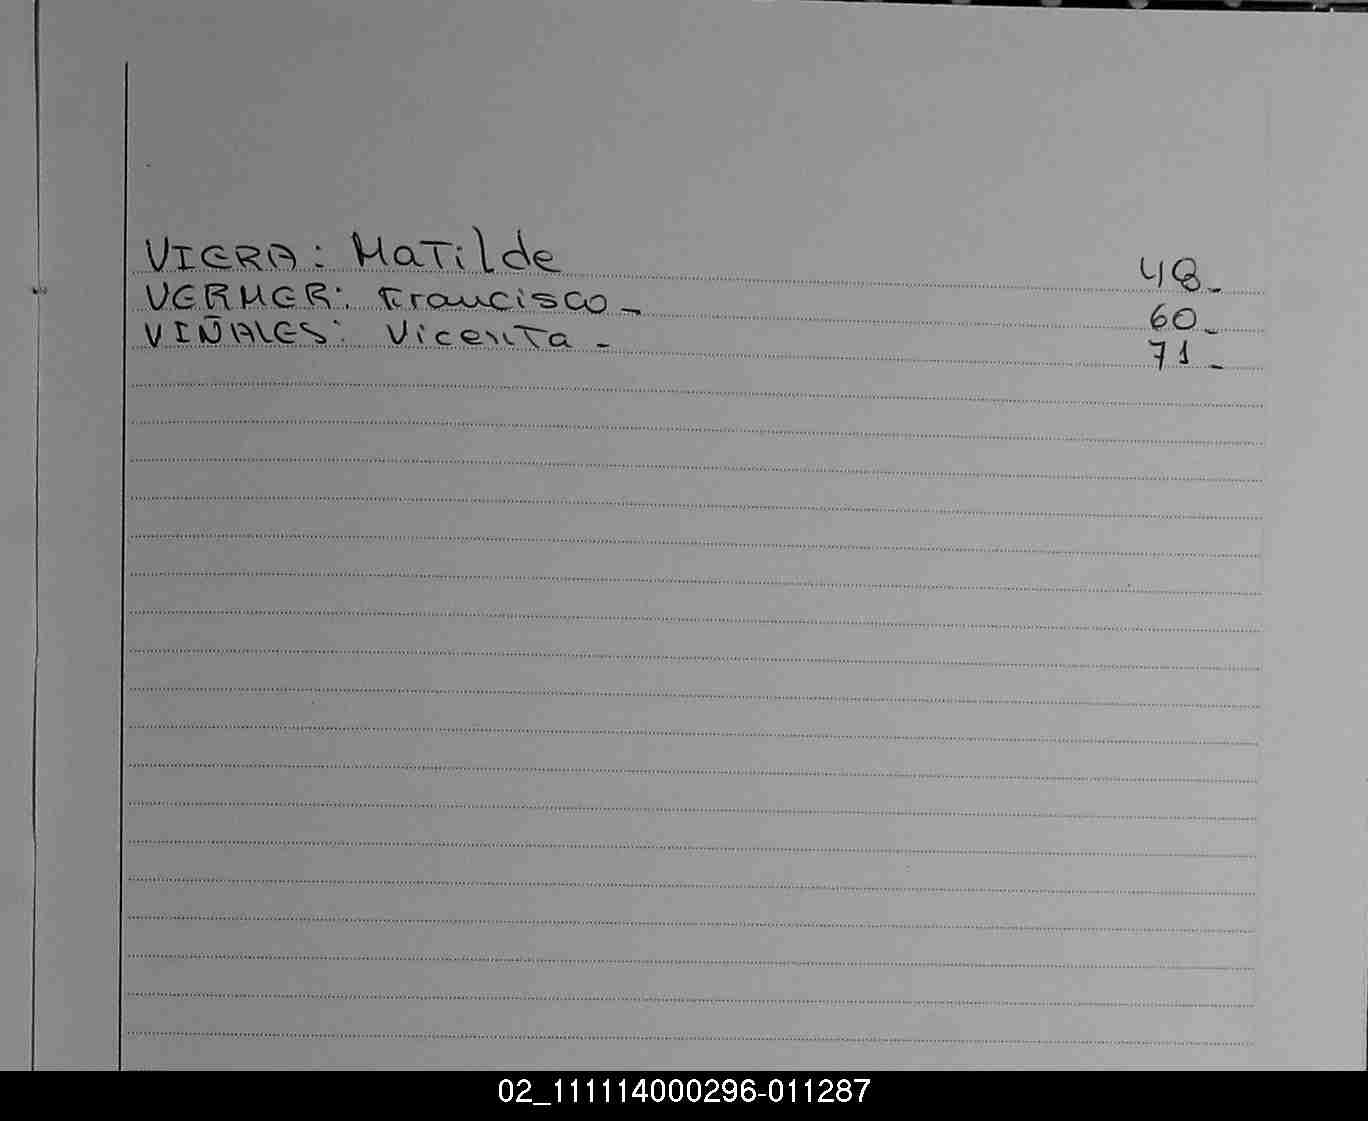 VIERA: Matilde 48-
VERMER: Francisco - 60-
VIÑALES: Vicenta - 71-
02_111114000296-011287